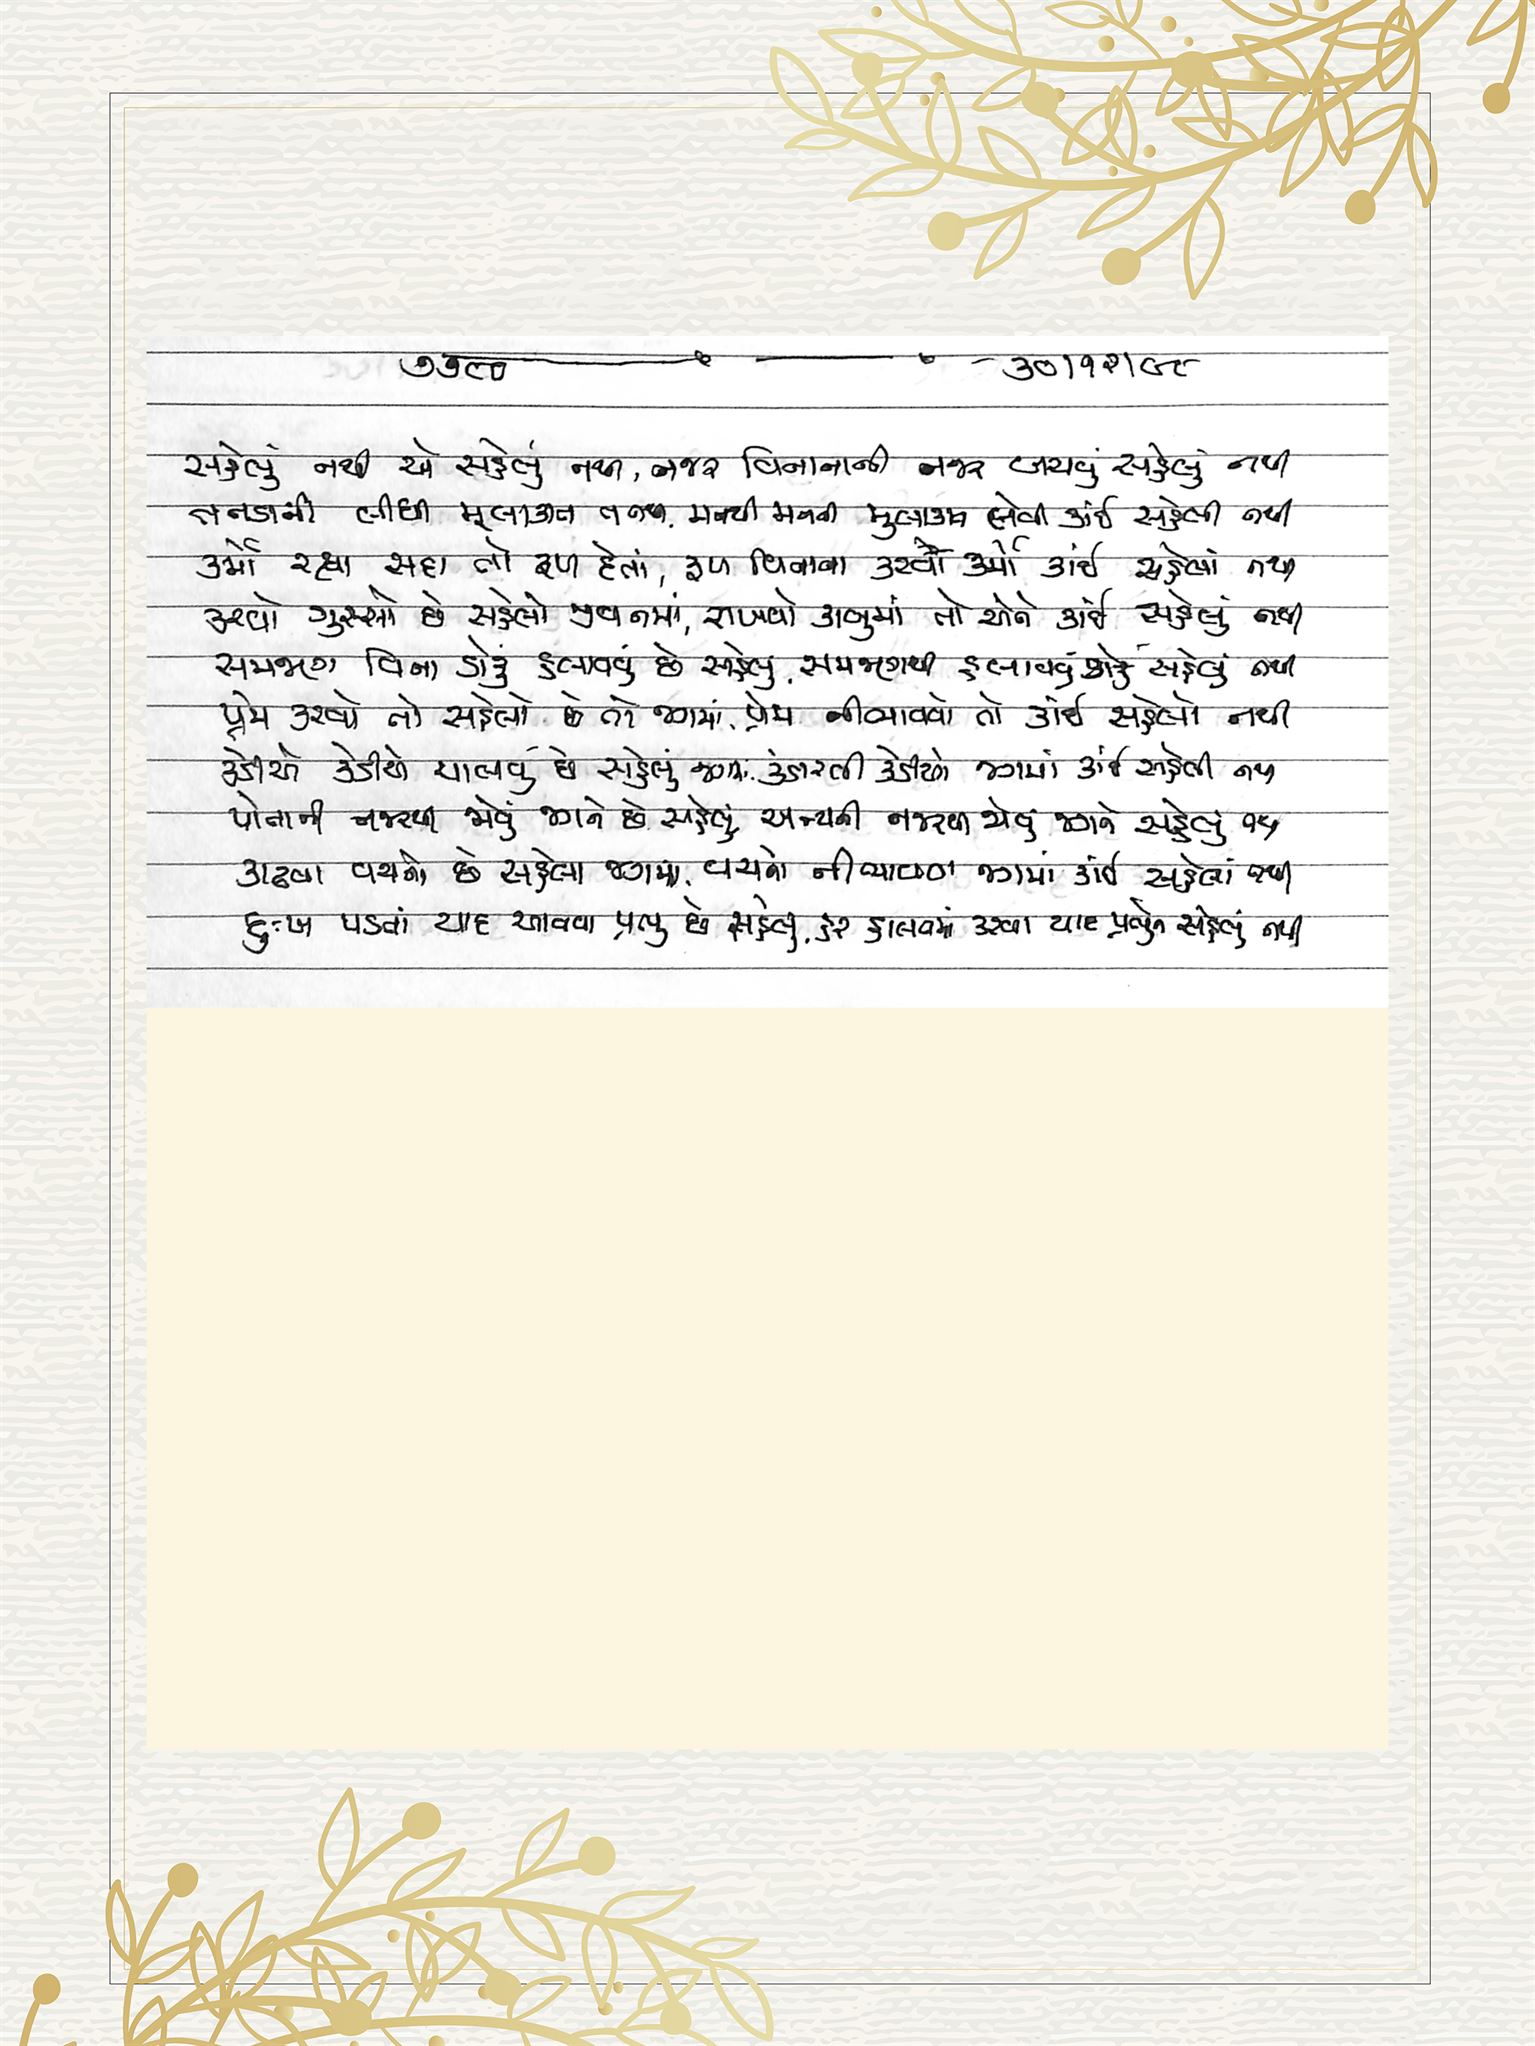 ૭૭૯૦ ૩૦।૧૨।૯૮
સહેલું નથી એ સહેલું નથી, નજર વિનાનાની નજર બચવું સહેલું નથી
તનડાની લીધી મુલાકાત તનથી, મનથી મનની મુલાકાત લેવી કાંઈ સહેલી નથી
કર્મો રહ્યા સદા તો ફળ દેતાં, ફળ વિનાના કરવાં કર્મો કાંઈ સહેલાં નથી
કરવો ગુસ્સો છે સહેલો જીવનમાં, રાખવો કાબુમાં તો એને કાંઈ સહેલું નથી
સમજણ વિના ડોકું હલાવવું છે સહેલું, સમજણથી હલાવવું ડોકું સહેલું નથી
પ્રેમ કરવો તો સહેલો છે તો જગમાં, પ્રેમ નીભાવવો તો કાંઈ સહેલો નથી
કેડીએ કેડીએ ચાલવું છે સહેલું જગમાં, કંડારવી કેડીઓ જગમાં કાંઈ સહેલી નથી
પોતાની નજરથી જોવું જગને છે સહેલું, અન્યની નજરથી જોવું જગને સહેલું નથી
કાઢવા વચનો છે સહેલા જગમાં, વચનો નીભાવવા જગમાં કાંઈ સહેલાં નથી
દુઃખ પડતાં યાદ આવવા પ્રભુ છે સહેલું, હર હાલતમાં કરવા યાદ પ્રભુને સહેલું નથી